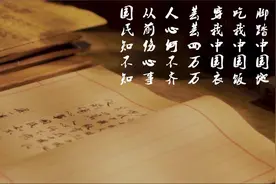 脚踏中国地
吃我中国饭
穿我中国衣
芸芸四万万
人心何不齐
从前伤心事
国民知不知